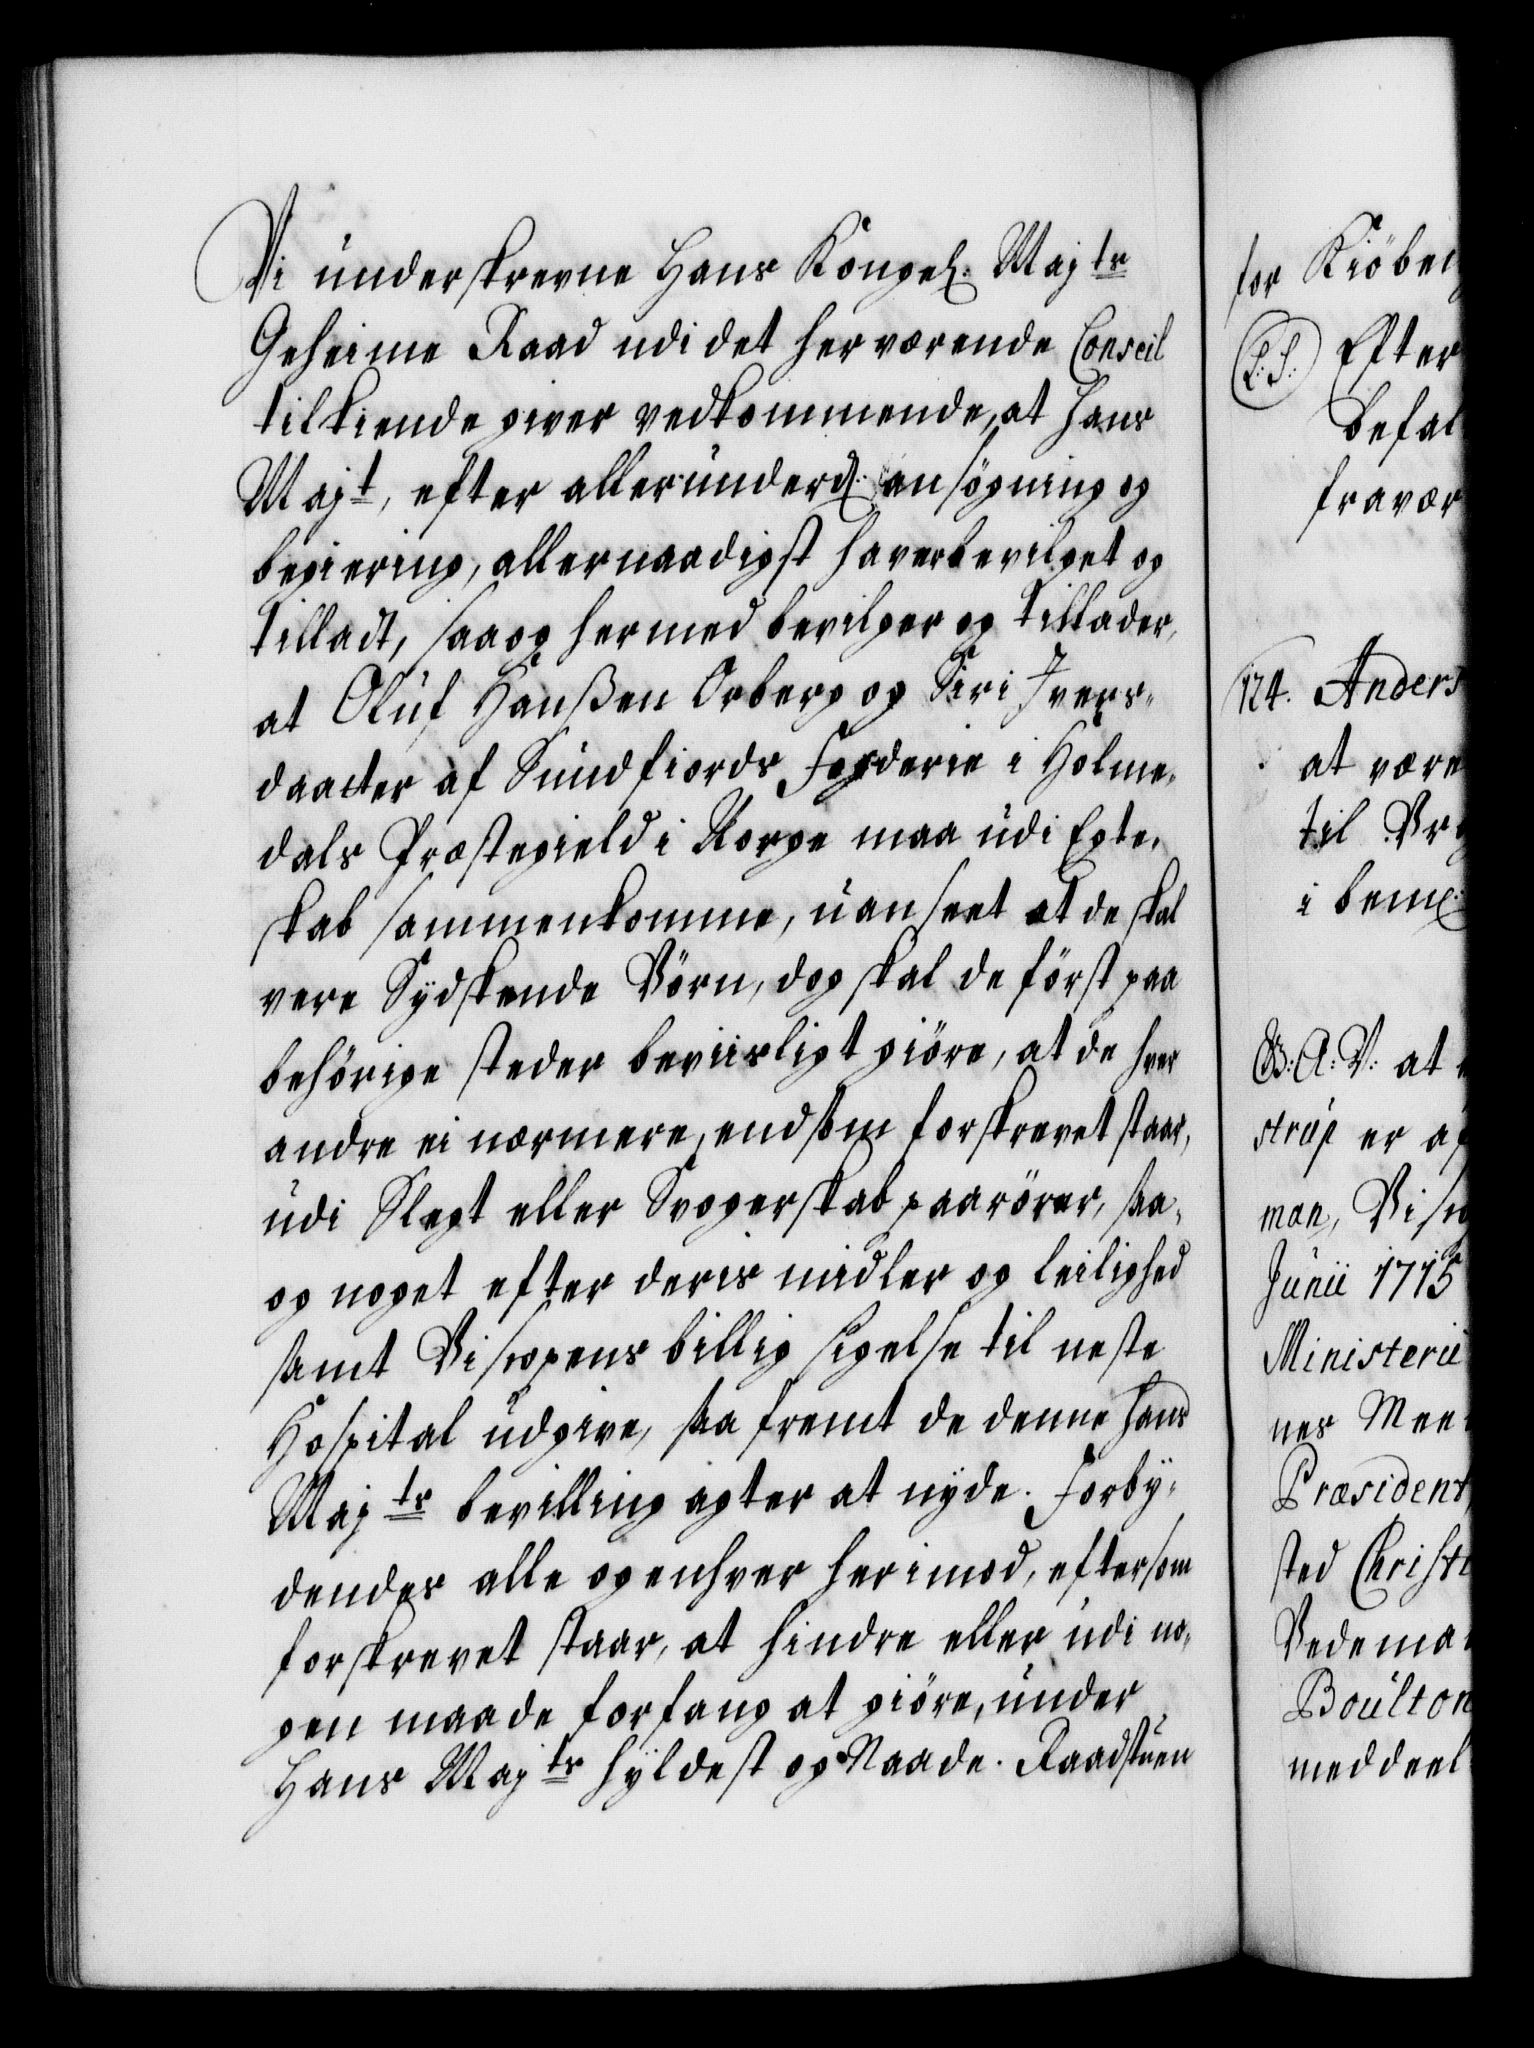 Vi underskrevne Hans Kongel. Majtr
Geheime Raad udi det herværende Conseil
tilkiende giver vedkommende, at Hans
Majt, efter allerunderd. ansøgning og
begiering, allernaadigst haver bevilget og
tilladt, saa og hermed bevilger og tillader,
at Oluf Hanßen Orberg og Siri Ivers-
daatter af Sundfiords Fogderie i Holme-
dals Præstegield i Norge maa udi Egte-
skab sammenkomme, uanseet at de skal
vere Sydskende Börn, dog skal de först paa
behörige steder beviisligt giöre, at de hver
andre ei nærmere, end som forskrevet staar,
udi Slegt eller Svogerskab paarörer, saa-
og noget efter deris midler og leilighed
samt Biscopens billig sigelse til neste
Hospital udgive, saa fremt de denne Hans
Majts bevilling agter at nyde. Forby-
dendes alle og enhver herimod, eftersom
forskrevet staar, at hindre eller udi no-
gen maade forfang at giöre, under
Hans Majts hyldest og Naade. Raadstuen
for Kiöben
(L.S.) Efter
befal
fravær
124. Anders
at være
til Br
i bem.
G: A: V: at
strup er af
man, Bisco
Junii 1715
Ministerii
nes Mee
Præsident
sted Christ
Vedema
Boulton
meddeel